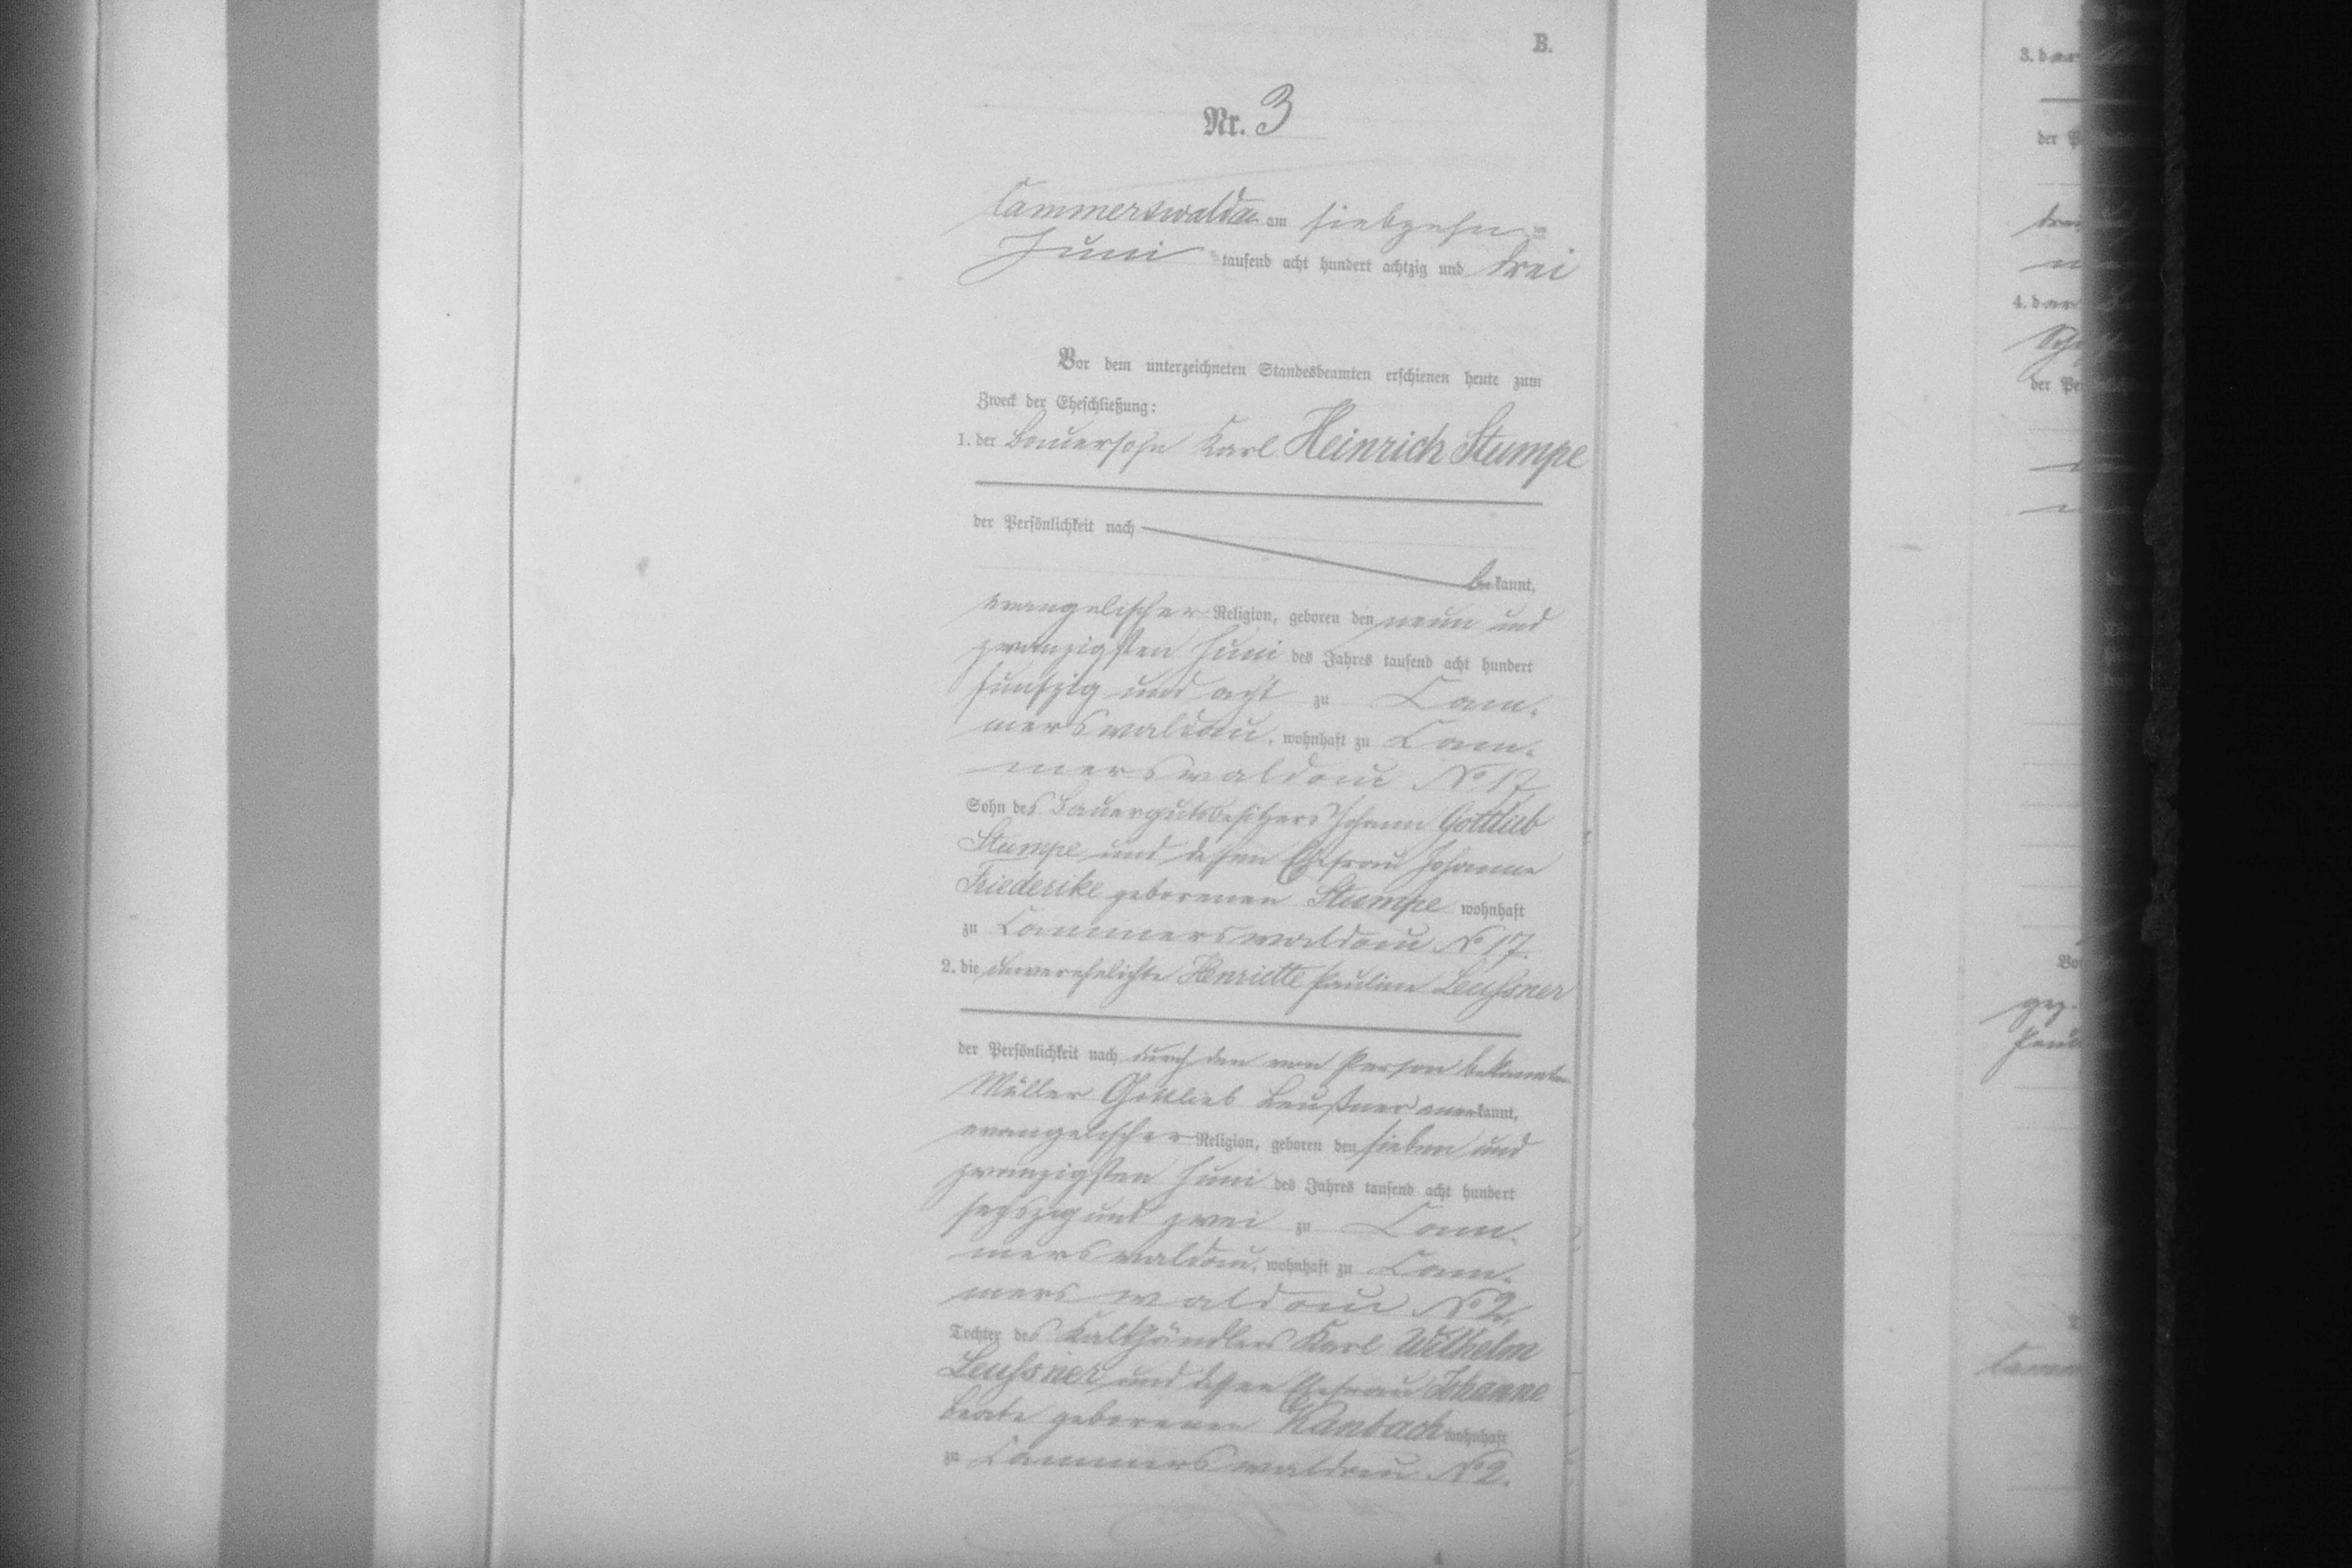 B.
Nr. 3
Cammerswaldau am siebzehnten
Juni tausend acht hundert achtzig und drei
Vor dem unterzeichneten Standesbeamten erschienen heute zum
Zweck der Eheschließung:
1. der Bauersohn Karl Heinrich Stumpe
der Persönlichkeit nach
bekannt,
evangelischer Religion, geboren den neun und
zwanzigsten Juni des Jahres tausend acht hundert
funfzig und acht zu Cam-
merswaldau, wohnhaft zu Cam-
merswaldau No 17,
Sohn des Bauergutsbesitzers Johann Gottlieb
Stumpe und dessen Ehefrau Johanne
Friederike geborenen Stumpe wohnhaft
zu Cammerswaldau No 17.
2. die unverehelichte Henriette Pauline Leussner
der Persönlichkeit nach durch den von Person bekannten
Müller Gottlieb Leußner anerkannt,
evangelischer Religion, geboren den sieben und
zwanzigsten Juni des Jahres tausend acht hundert
sechszig und zwei zu Cam-
merswaldau, wohnhaft zu Cam-
merswaldau No 2,
Tochter des Kalkhändlers Karl Wilhelm
Leussner und dessen Ehefrau Johanne
Beate geborenen Kanbach wohnhaft
zu Cammerswaldau No 2.
3. der
der
4. der
der